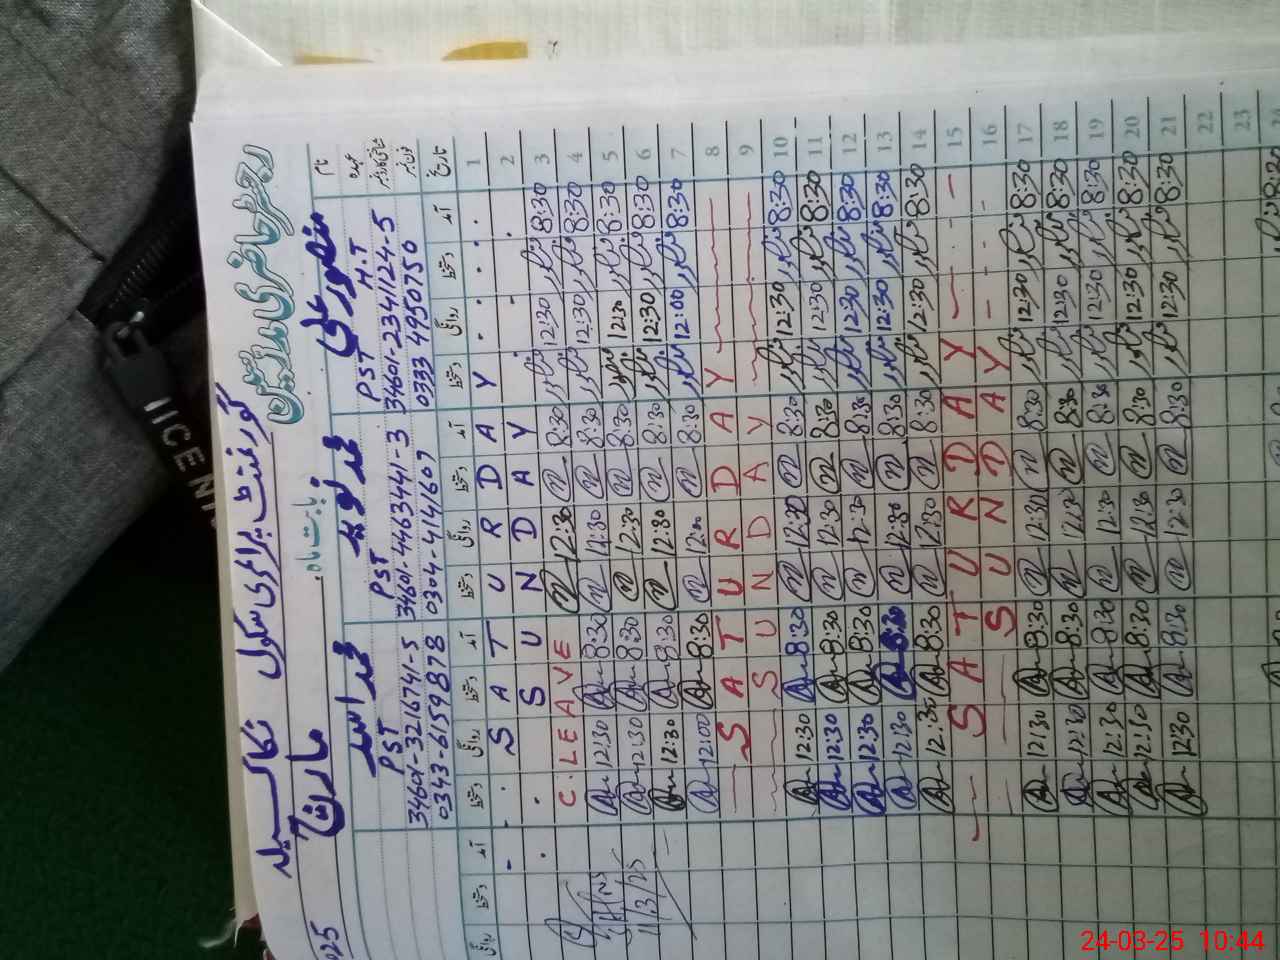 رجسٹر حاضری مدرسین
گورنمنٹ پرائمری سکول
بابت ماہ مارچ
025
نام منظور علی محمد نوید محمد اسد
عہدہ PST H.T PST PST
34601-2341124-5 34601-4463441-3 34601-3216741-5
0333 4950750 0304-4141609 0343-6159878
تاریخ آمد دستخط روانگی دستخط آمد دستخط روانگی دستخط آمد دستخط روانگی دستخط آمد دستخط روانگی
1 S A T U R D A Y
2 S U N D A Y
3 8:30 12:30 8:30 12:30 C.LEAVE
4 8:30 12:30 8:30 12:30 8:30 12:30
5 8:30 12:30 8:30 12:30 8:30 12:30
6 8:30 12:30 8:30 12:30 8:30 12:30
7 8:30 12:00 8:30 12:00 8:30 12:00
11/3/25
8 S A T U R D A Y
9 S U N D A Y
10 8:30 12:30 8:30 12:30 8:30 12:30
11 8:30 12:30 8:30 12:30 8:30 12:30
12 8:30 12:30 8:30 12:30 8:30 12:30
13 8:30 12:30 8:30 12:30 8:30 12:30
14 8:30 12:30 8:30 12:30 8:30 12:30
15 S A T U R D A Y
16 S U N D A Y
17 8:30 12:30 8:30 12:30 8:30 12:30
18 8:30 12:30 8:30 12:30 8:30 12:30
19 8:30 12:30 8:30 12:30 8:30 12:30
20 8:30 12:30 8:30 12:30 8:30 12:30
21 8:30 12:30 8:30 12:30 8:30 12:30
22
23
24 8:30
24-03-25 10:44